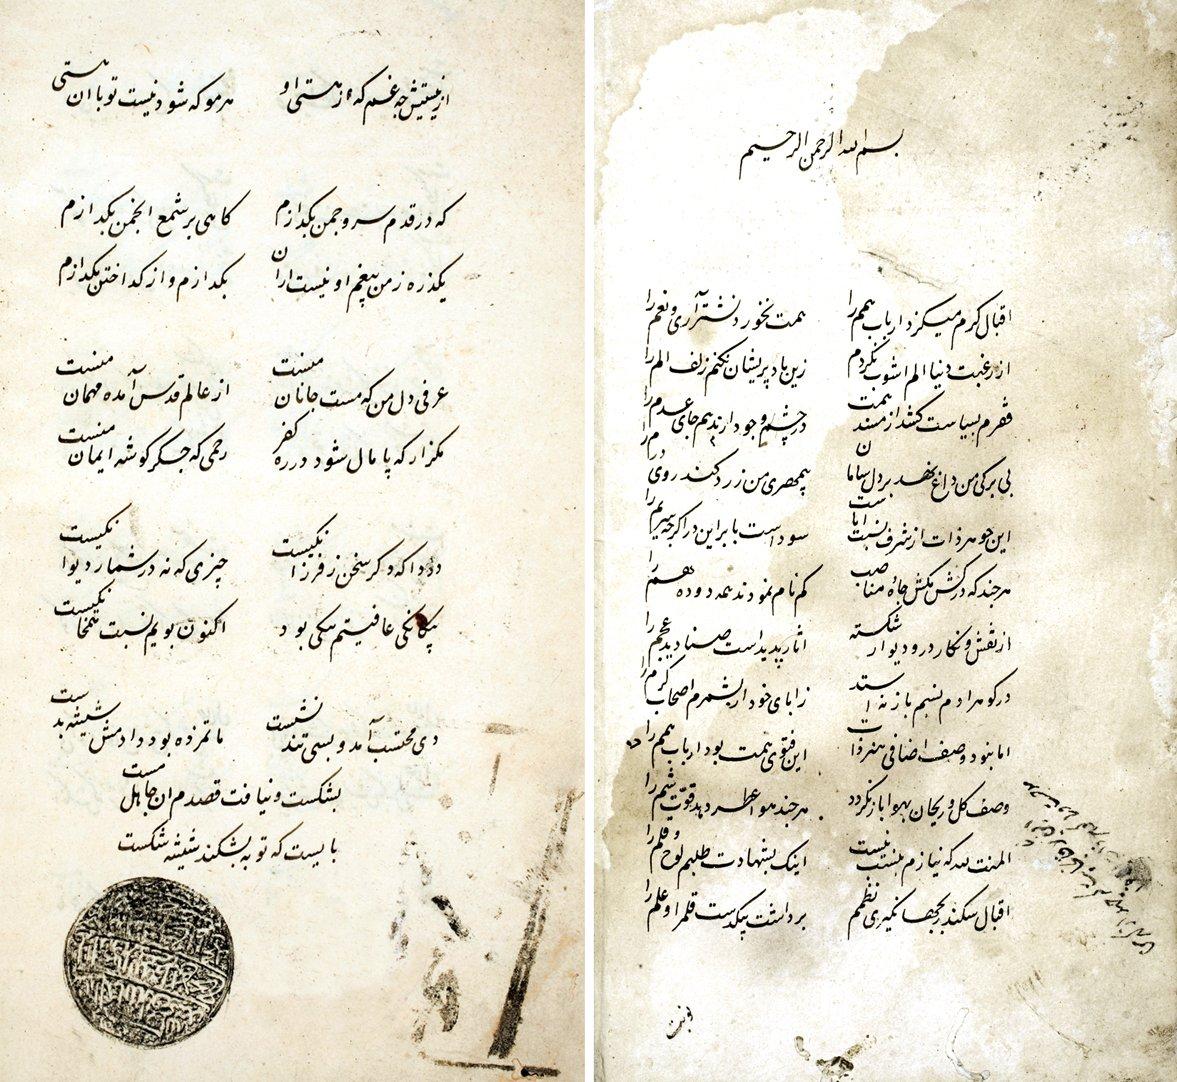 بسم الله الرحمن الرحیم
اقبال کرم میکزد ارباب همم را همت نخورد نشتر آری و نعم را
از رغبت دنیا الم اشوب نکردم زین باد پریشان نکنم زلف الم را
فقرم بسیاست کشد از مسند همت در چشم وجود ار ندهم جای عدم را
بی برکی من داغ نهد بر دل سامان بیمهری من زرد کند روی درم را
این جوهر ذات از شرف نسبت اباست
هرچند که در کش مکش جاه مناصب کم نام نمودند همه دوده هم را
از نقش و نکار در و دیوار شکسته اثار پدیدست صنادید عجم را
در کوهر ادم نسبم باز نه استد ز ابای خود ار بشمرم اصحاب کرم را
اما نبود وصف اضافی هنر ذات این فتوی همت بود ارباب همم را
وصف کل و ریحان بهوا باز نکردد هرچند هوا عطر دهد قوت شم را
المنت لله که نیازم بنسب نیست اینک بشهادت طلبم لوح و قلم را
اقبال سکندر بجهانکیری نظمم برداشت بیکدست قلم را و علم را
از نیستیش چه غم که از هستی او هر مو که شود نیست تو با ان هستی
که در قدم سرو چمن بکدازم کاهی بر شمع انجمن بکدازم
یکذره ز من بیغم او نیست اران بکدازم و از کداختن بکدازم
عرفی دل من که مست جانان منست از عالم قدس آمده مهمان منست
مکزار که پامال شود در ره کفر رحمی که جکر کوشه ایمان منست
دردا که دکر سخن ز فرزانکیست چیزی که نه در شمار دیوانکیست
بیکانکی عافیتم نیکی بود اکنون بویم نسبت همخانکیست
دی محتسب آمد و بسی تند نشست ما تمزده بود دادمش شیشه بدست
بشکست و نیافت قصدم ان جاهل مست
بایست که توبه بشکند شیشه شکست